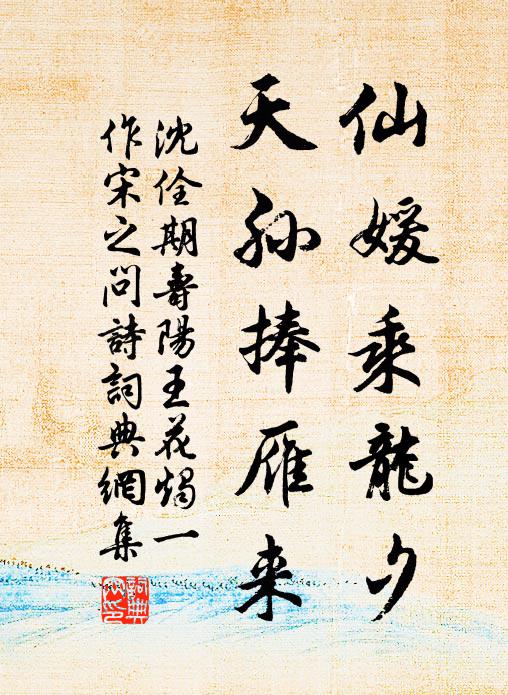 仙媛乘龍夕
天孫捧雁来
沈佺期壽陽王花燭一
作宋之問詩詞典網集